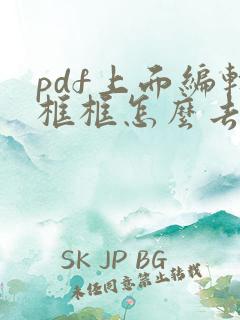 pdf上而编辑
框框怎麽去
SK JP BG
未经同意禁止转载